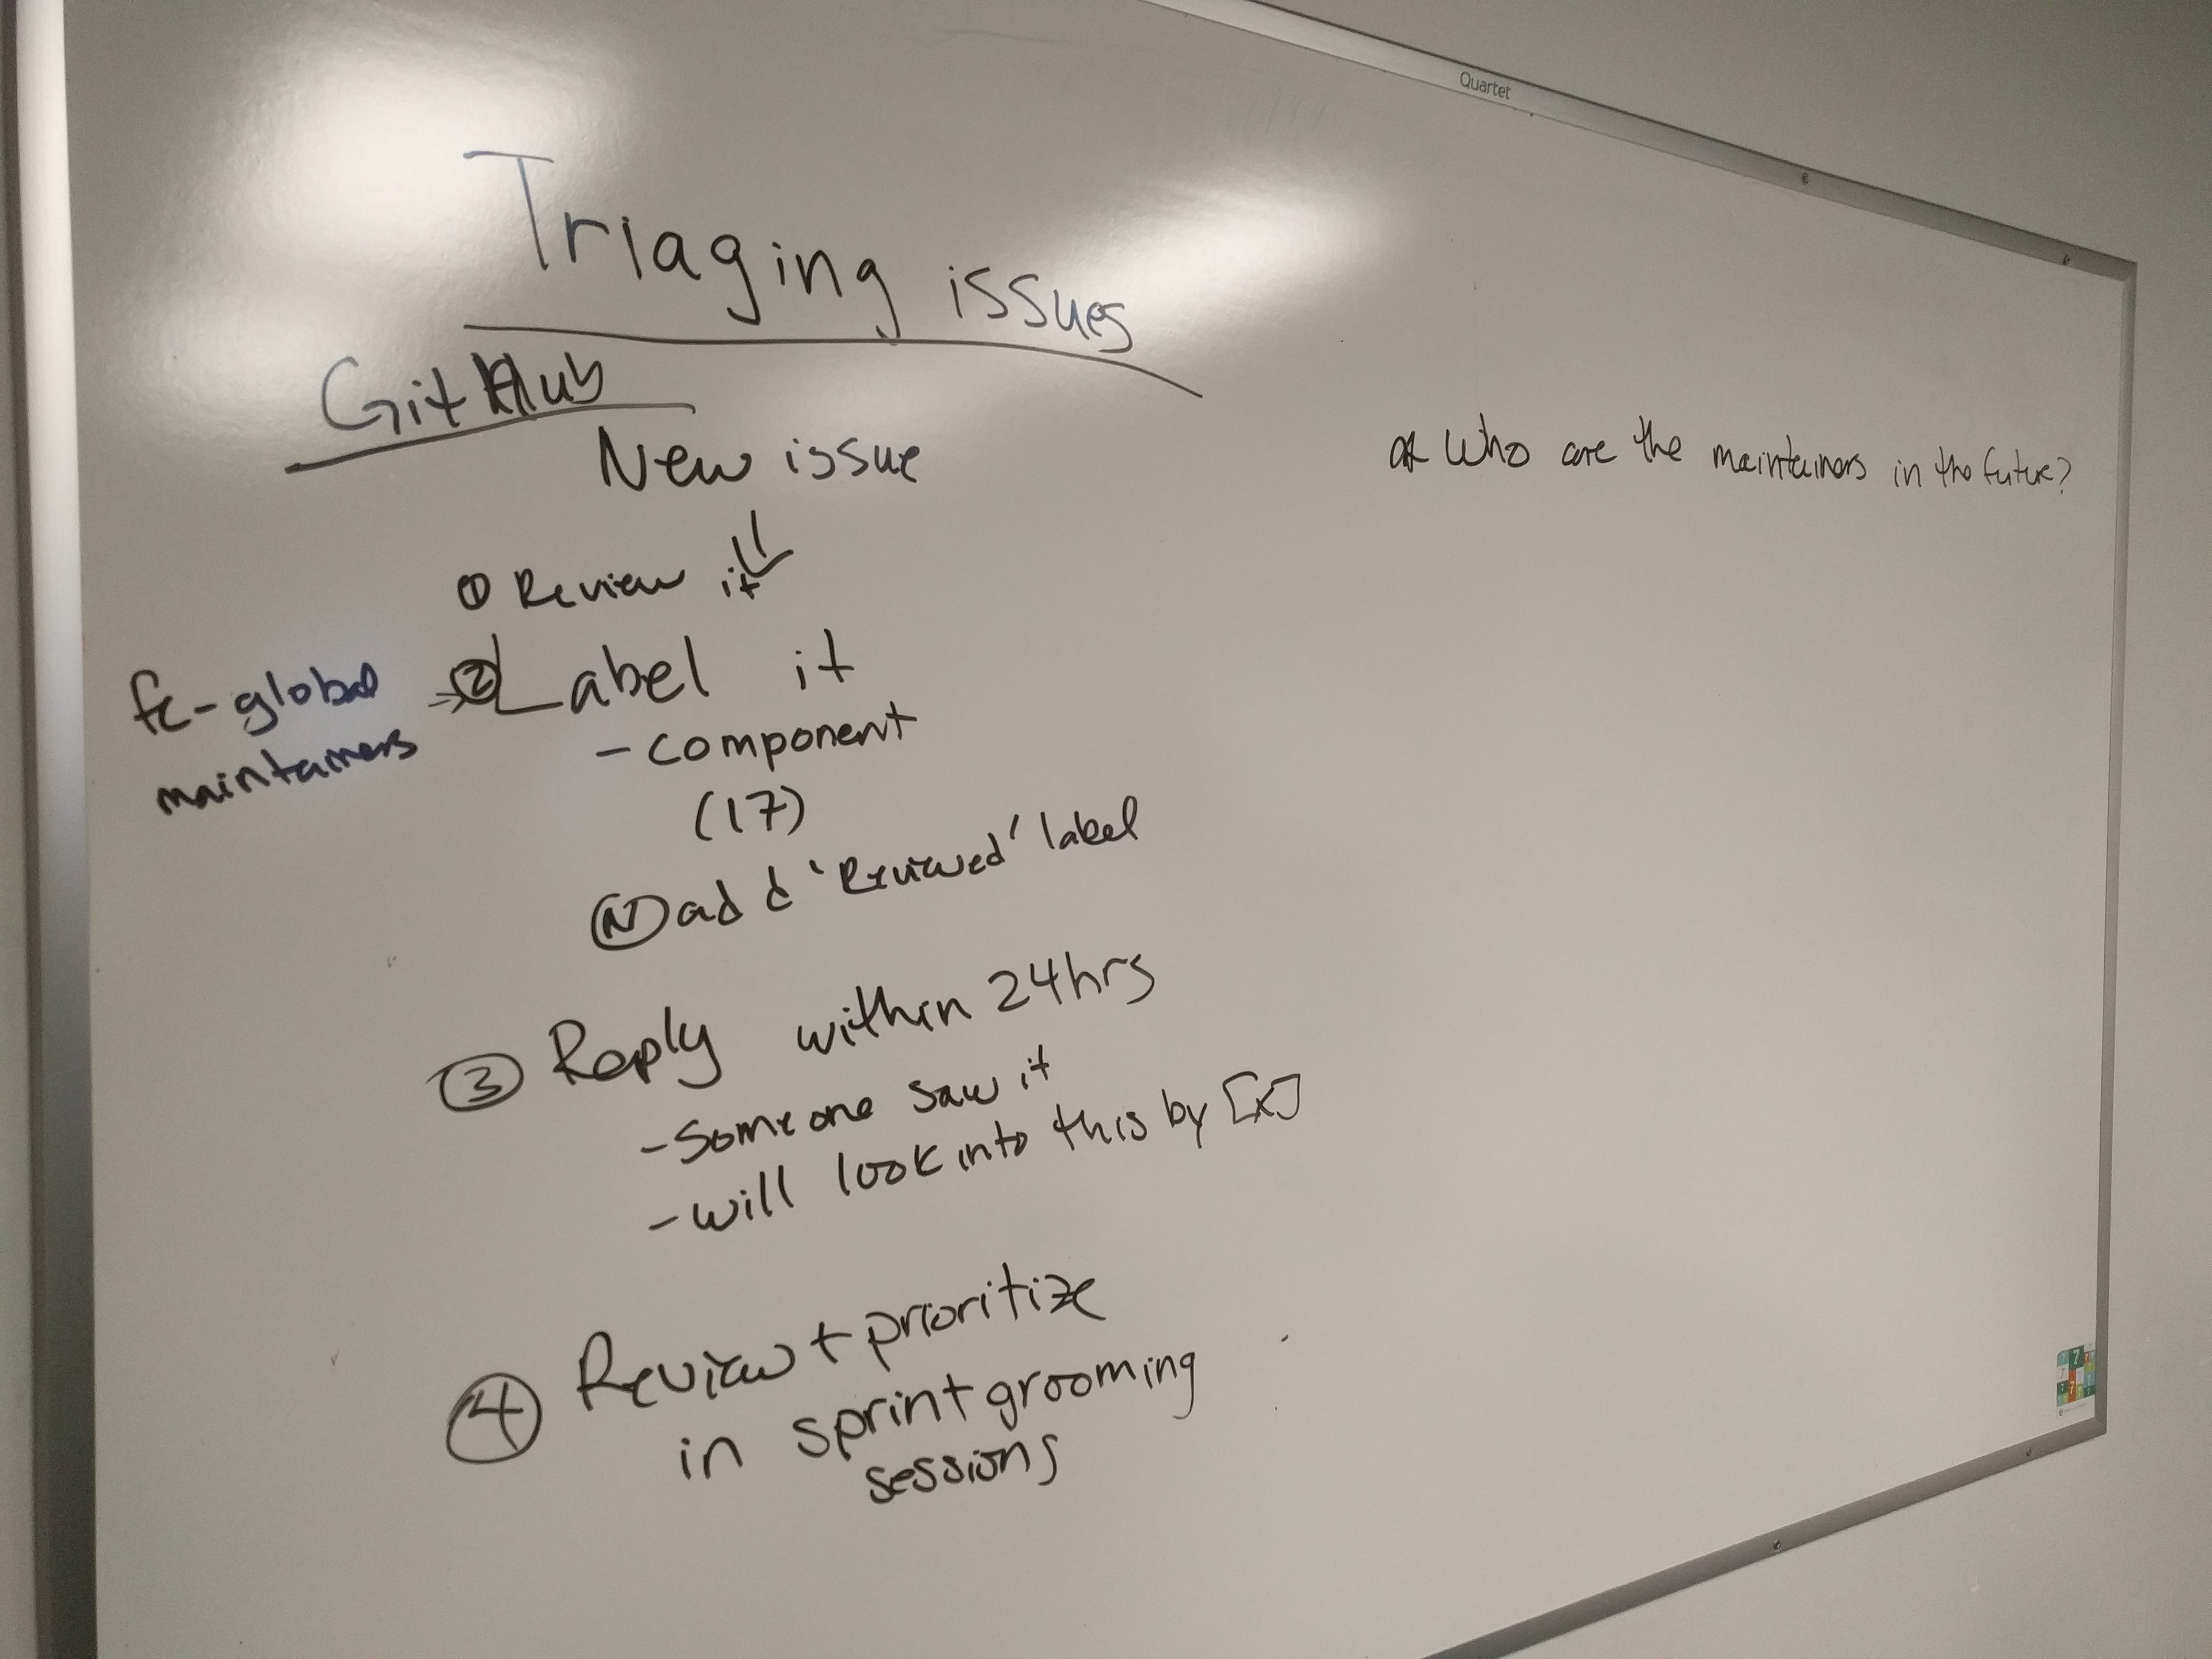 Quartet
Triaging issues
GitHub
New issue
① Review it
② Label it
fc-global
maintainers
- component
(17)
add 'Reviewed' label
③ Reply within 24hrs
- Someone saw it
- will look into this by [x]
④ Review + prioritize
in sprint grooming
sessions
Who are the maintainers in the future?